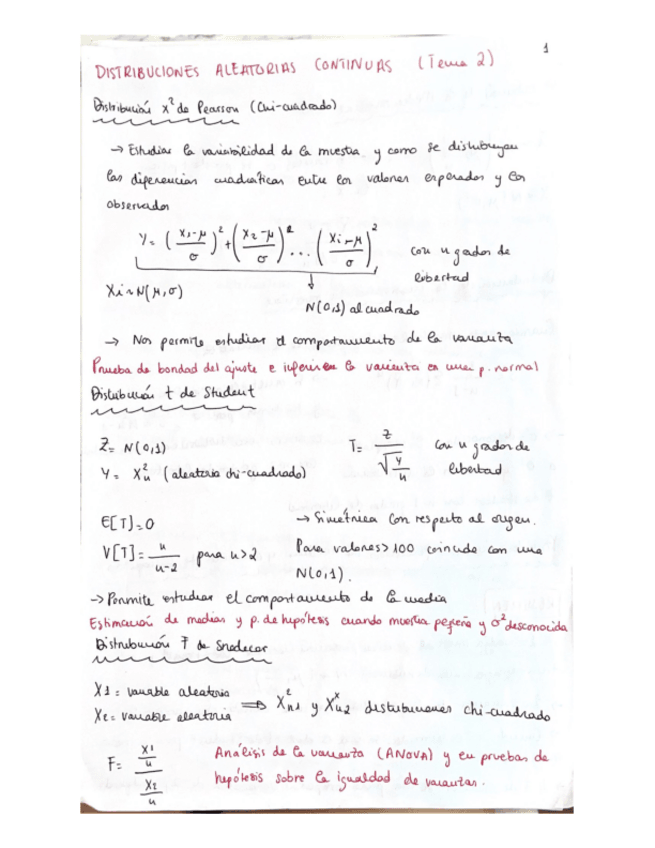 1
DISTRIBUCIONES ALEATORIAS CONTINUAS (Tema 2)
Distribución x² de Pearson (Chi-cuadrado)
→ Estudiar la variabilidad de la muestra y como se distribuyen
las diferencias cuadráticas entre los valores esperados y los
observados
Y = (X1-μ/σ)² + (X2-μ/σ)² ... (Xi-μ/σ)² con n grados de
libertad
Xi ~ N(μ,σ) ↓
N(0,1) al cuadrado
→ Nos permite estudiar el comportamiento de la varianza
Prueba de bondad del ajuste e inferir en la varianza en una p. normal
Distribución t de Student
Z = N(0,1) T = Z/√(Y/n) con n grados de
Y = X²n (aleatoria chi-cuadrado) libertad
E[T]=0 → Simétrica con respecto al origen.
V[T] = n/n-2 para n>2 Para valores > 100 coincide con una
N(0,1).
→ Permite estudiar el comportamiento de la media
Estimación de medias y p. de hipótesis cuando muestra pequeña y σ² desconocida
Distribución F de Snedecor
X1 = variable aleatoria
X2 = variable aleatoria ⇒ X²n1 y Xn2 distribuciones chi-cuadrado
F = (X1/n)/(X2/n) Análisis de la varianza (ANOVA) y en pruebas de
hipótesis sobre la igualdad de varianzas.